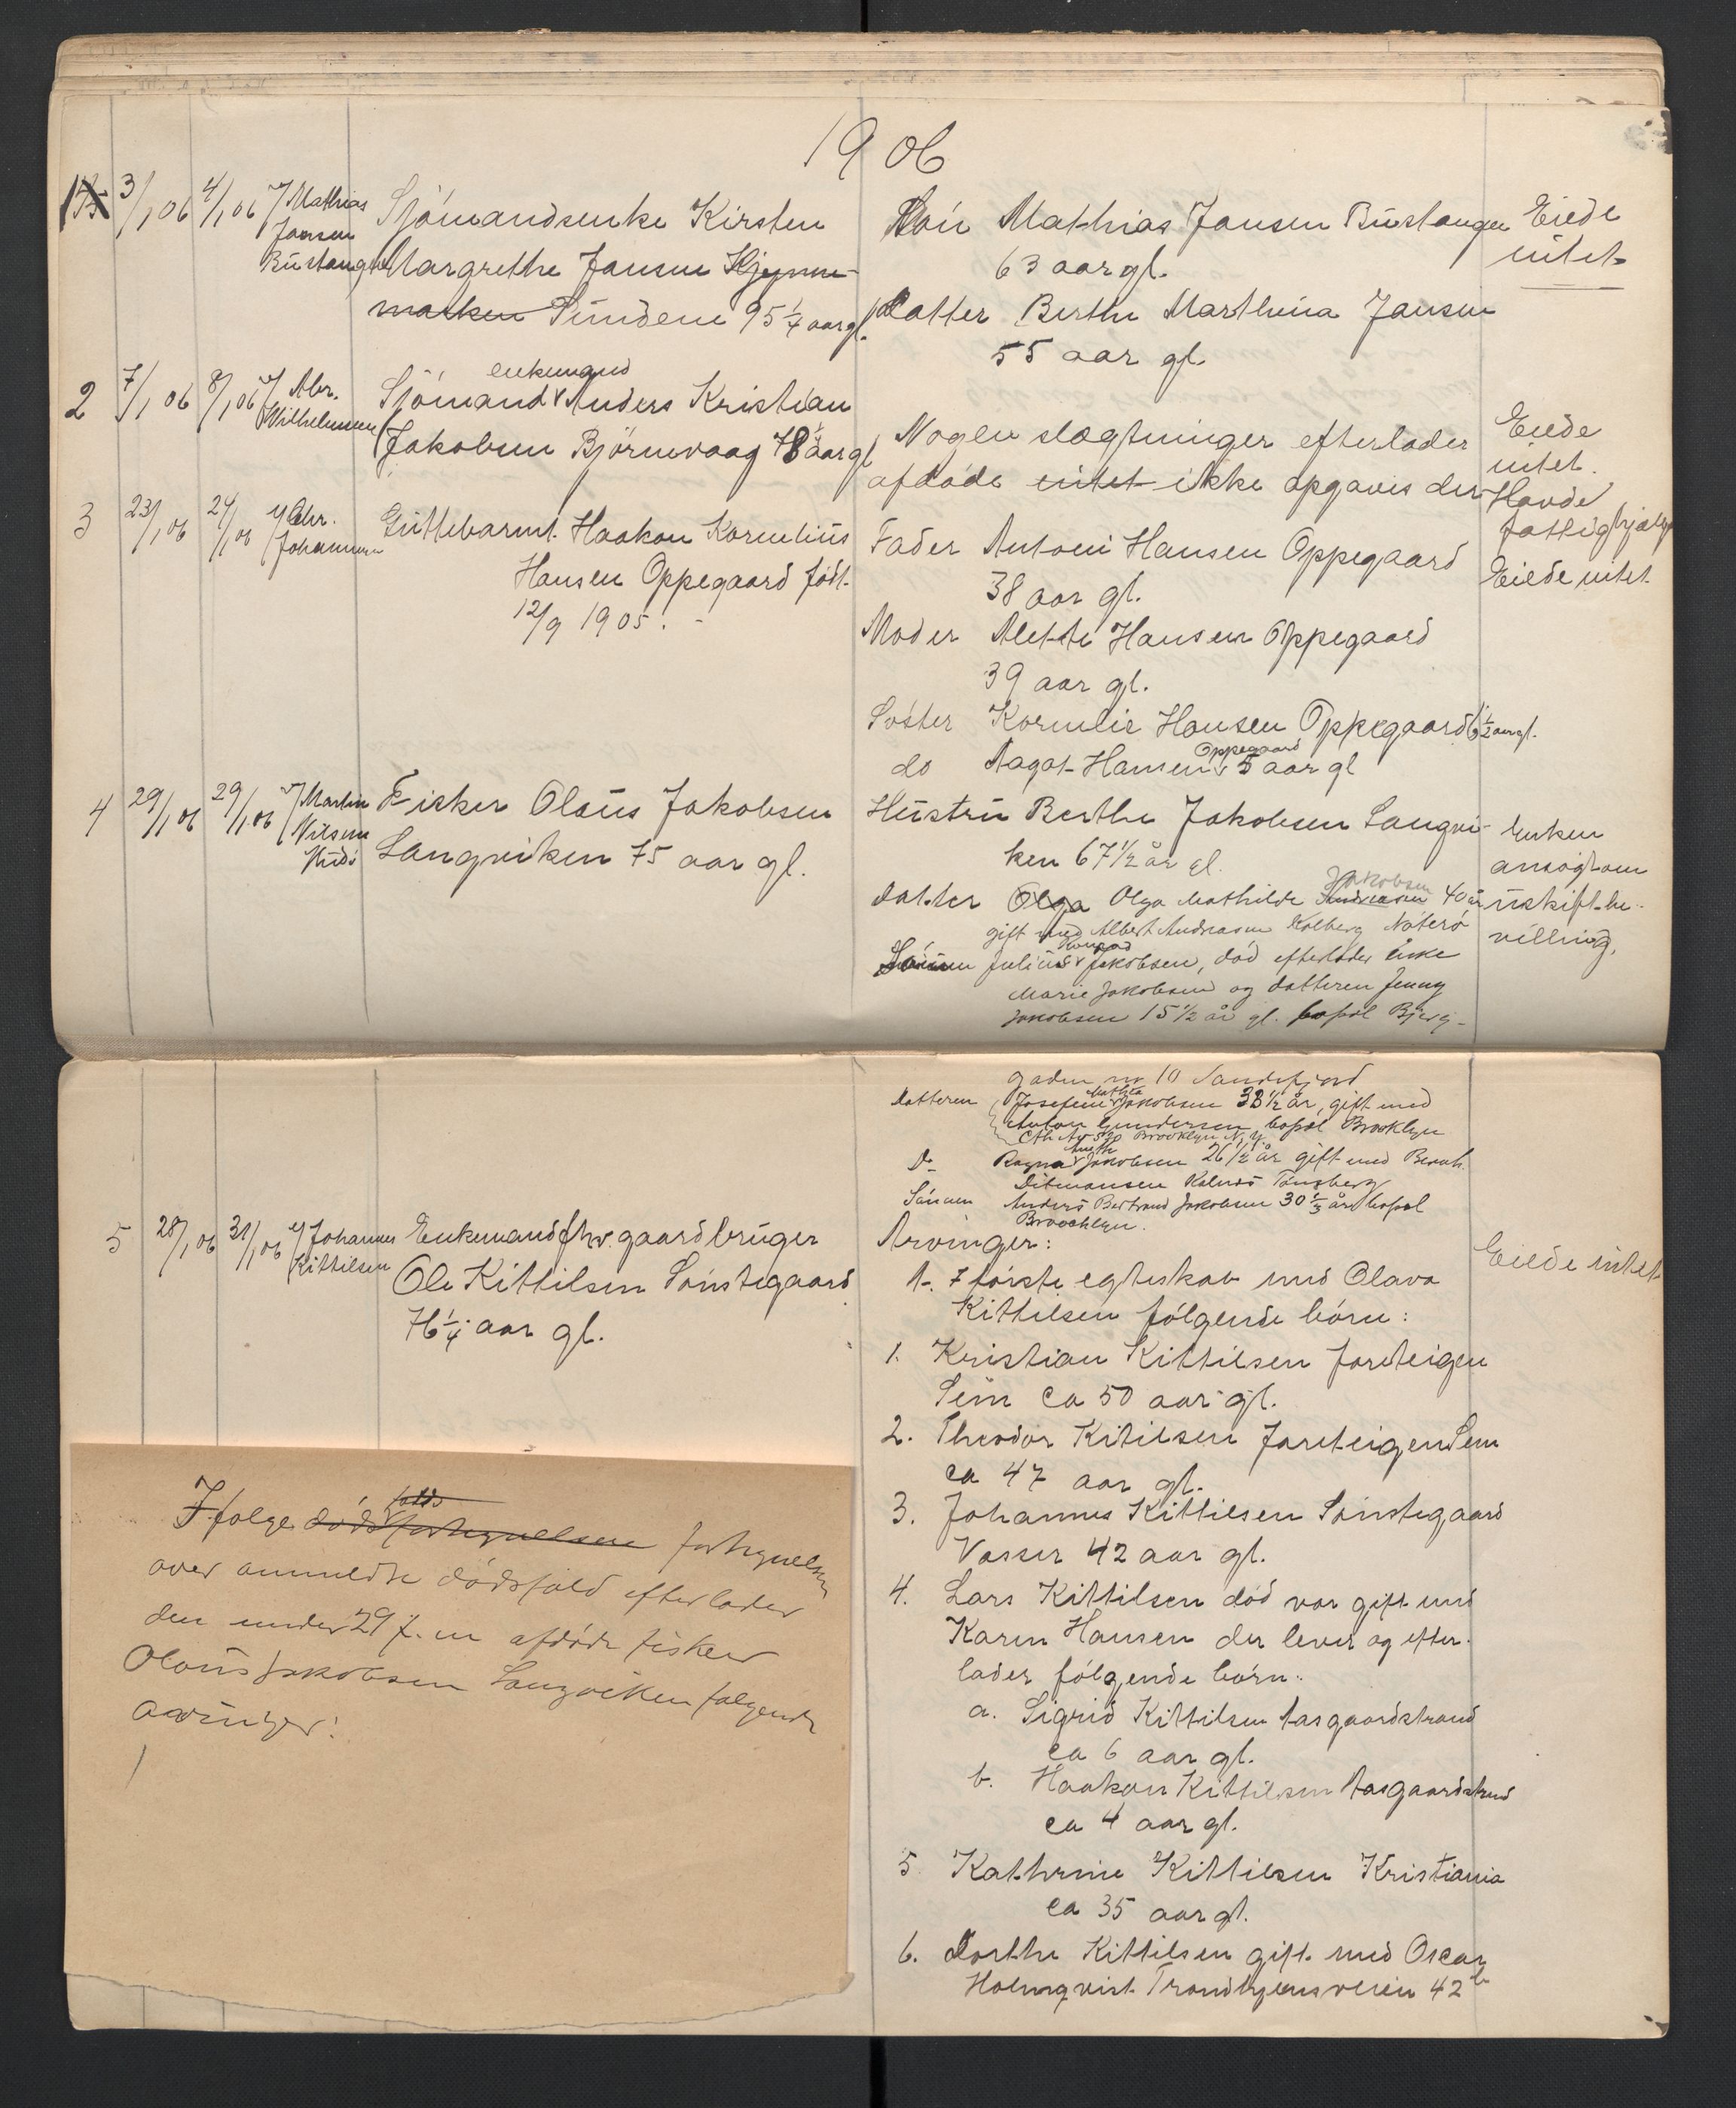 1906
1 3/1 06 4/1 06 v/ Mathias Jansen Bustangen
Sjömandsenke Kirsten
Margrethe Jansen Kjynne-
marken Sundene 95 1/4 aar gl.
Sön Mathias Jansen Bustangen
63 aar gl.
Datter Berthe Marthina Jansen
55 aar gl.
Eiede
intet
2 7/1 06 8/1 06 v/ Abr. Wilhelmsen
enkemand
Sjömand Anders Kristian
Jakobsen Björnevaag 78 aar gl
Nogen slægtninger efterlader
afdöde intet ikke opgaves der
Eiede
intet.
Havde
fattighjælp
3 23/1 06 24/1 06 v/ Chr. Johannesen
Guttebarnet Haakon Kornelius
Hansen Oppegaard födt
12/9 1905.
Fader Antoni Hansen Oppegaard
38 aar gl.
Moder Alette Hansen Oppegaard
39 aar gl.
Söster Kornelie Hansen Oppegaard 6 1/2 aar gl.
do Aagot Hansen Oppegaard 5 aar gl
Eiede intet
4 29/1 06 29/1 06 v/ Martin Nilsen
Fisker Olaus Jakobsen
Langviken 75 aar gl.
Hustru Berthe Jakobsen Langvi-
ken 67 1/2 år gl.
Jakobsen
datter Olga Olga Mathilde Andreasen 40 år
gift med Albert Andreasen Kolberg Nöterö
Sönnen Julius Jakobsen, död efterlader enke
Marie Jakobsen og datteren Jenny
Jakobsen 15 1/2 år gl. bopæl Bjerg-
Enken
ansögt om
uskiftbe-
villing.
gaden nr 10 Sandefjord
Mathea
datteren Josefine Jakobsen 33 1/2 år, gift med
Anton Gundersen, bopæl Brooklyn
Brooklyn N.Y.
D- Ragna Jakobsen 26 1/2 år gift med Bernh.
Ditmansen Kalnes Tönsberg
Sönnen Anders Bertrand Jakobsen 30 1/3 år bopæl
Broocklyn.
5 28/1 06 31/1 06 v/ Johannes Kittilsen
Enkemand fhv. gaardbruger
Ole Kittilsen Sönstegaard
76 1/4 aar gl.
Arvinger:
A. I förste egteskab med Olava
Kittilsen fölgende börn:
Eiede intet
1. Kristian Kittilsen Jareteigen
Sem ca 50 aar gl.
2. Theodor Kitilsen Jareteigen Sem
ca 47 aar gl.
3. Johannes Kittilsen Sönstegaard
Vasser 42 aar gl.
4. Lars Kittilsen död var gift med
Karen Hansen der lever og efter-
lader fölgende börn:
a. Sigrid Kittilsen Aasgaardstrand
ca 6 aar gl.
b. Haakon Kittilsen Aasgaardstrand
ca 4 aar gl.
5 Kathrine Kittilsen Kristiania
ca 35 aar gl.
6. Dorthe Kittilsen gift med Oscar
Holmqvist Trondhjemsveien 42 b
falds
Ifölge döds fortegnelsen fortegnelsen
over anmeldte dödsfald efterlader
den under 29 f. m afdöde fisker
Olaus Jakobsen Langviken fölgende
arvinger: